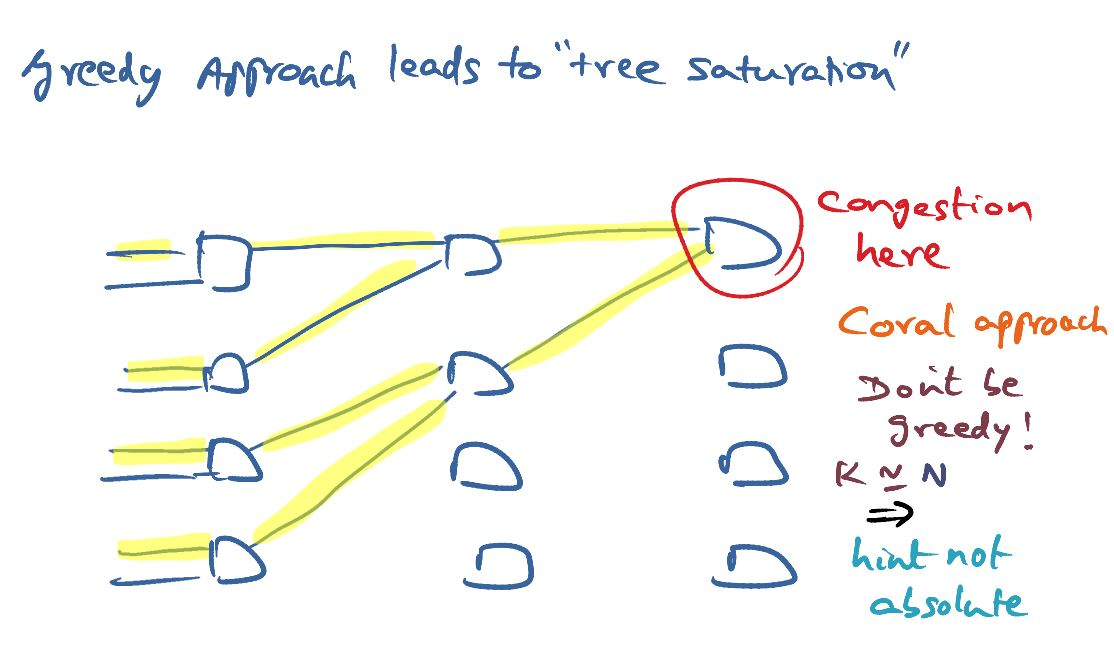 Greedy Approach leads to "tree saturation"
Congestion
here
Coral approach
Don't be
greedy!
K ≃ N
⇒
hint not
absolute